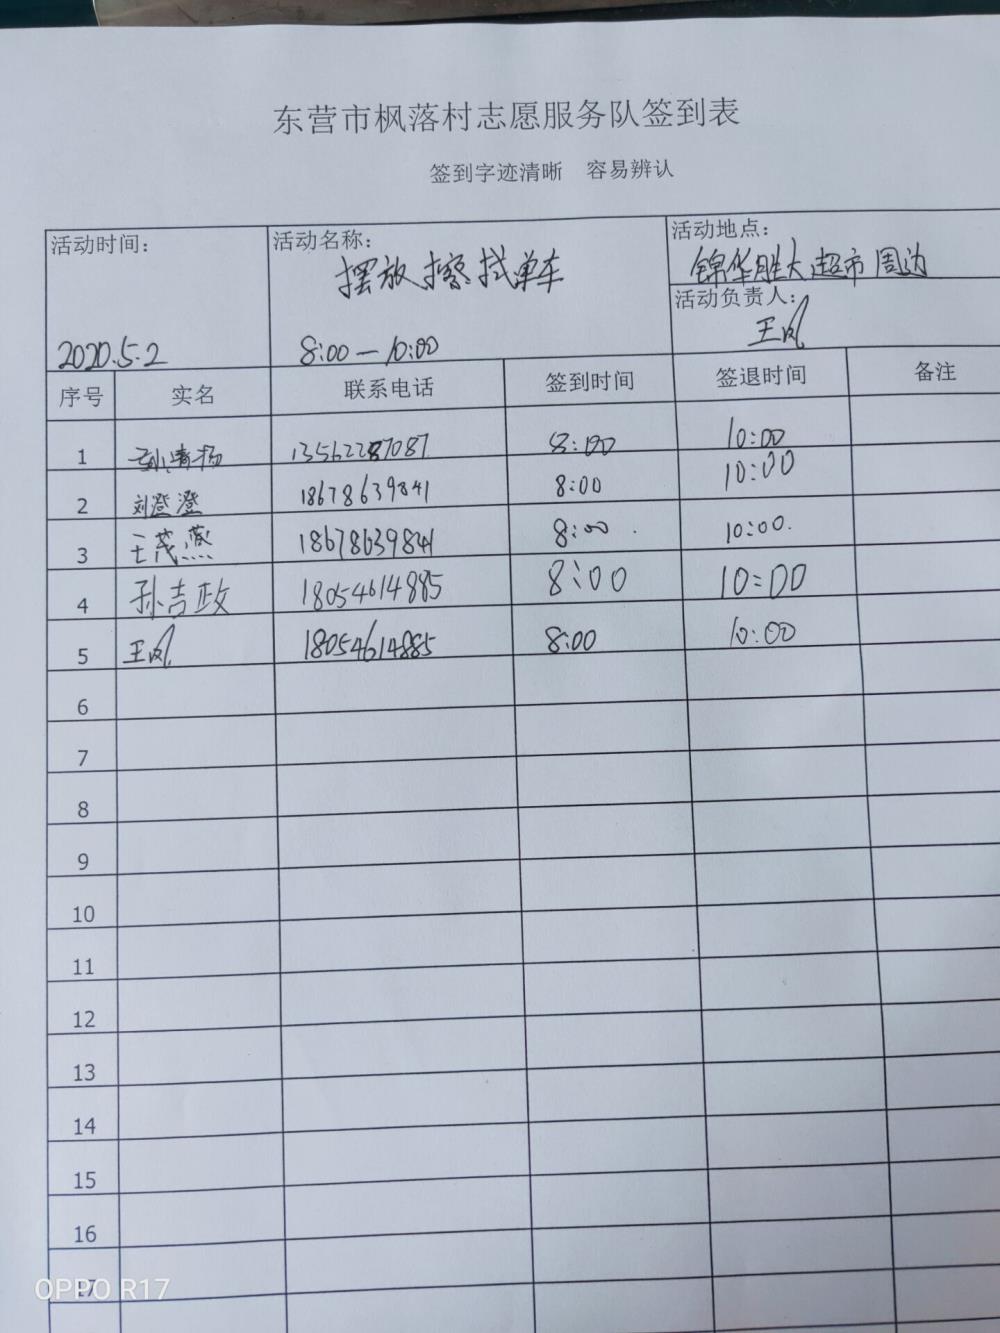 东营市枫落村志愿服务队签到表
签到字迹清晰 容易辨认
活动时间： 2020.5.2
活动名称： 摆放擦拭单车 8:00—10:00
活动地点： 锦华胜大超市周边
活动负责人： 王凤
序号 实名 联系电话 签到时间 签退时间 备注
1 13562287087 8:00 10:00
2 刘澄澄 18678639841 8:00 10:00
3 王茂燕 18678639841 8:00 10:00.
4 孙吉政 18054614885 8:00 10:00
5 王凤 18054614885 8:00 10:00
6
7
8
9
10
11
12
13
14
15
16
17
OPPO R17